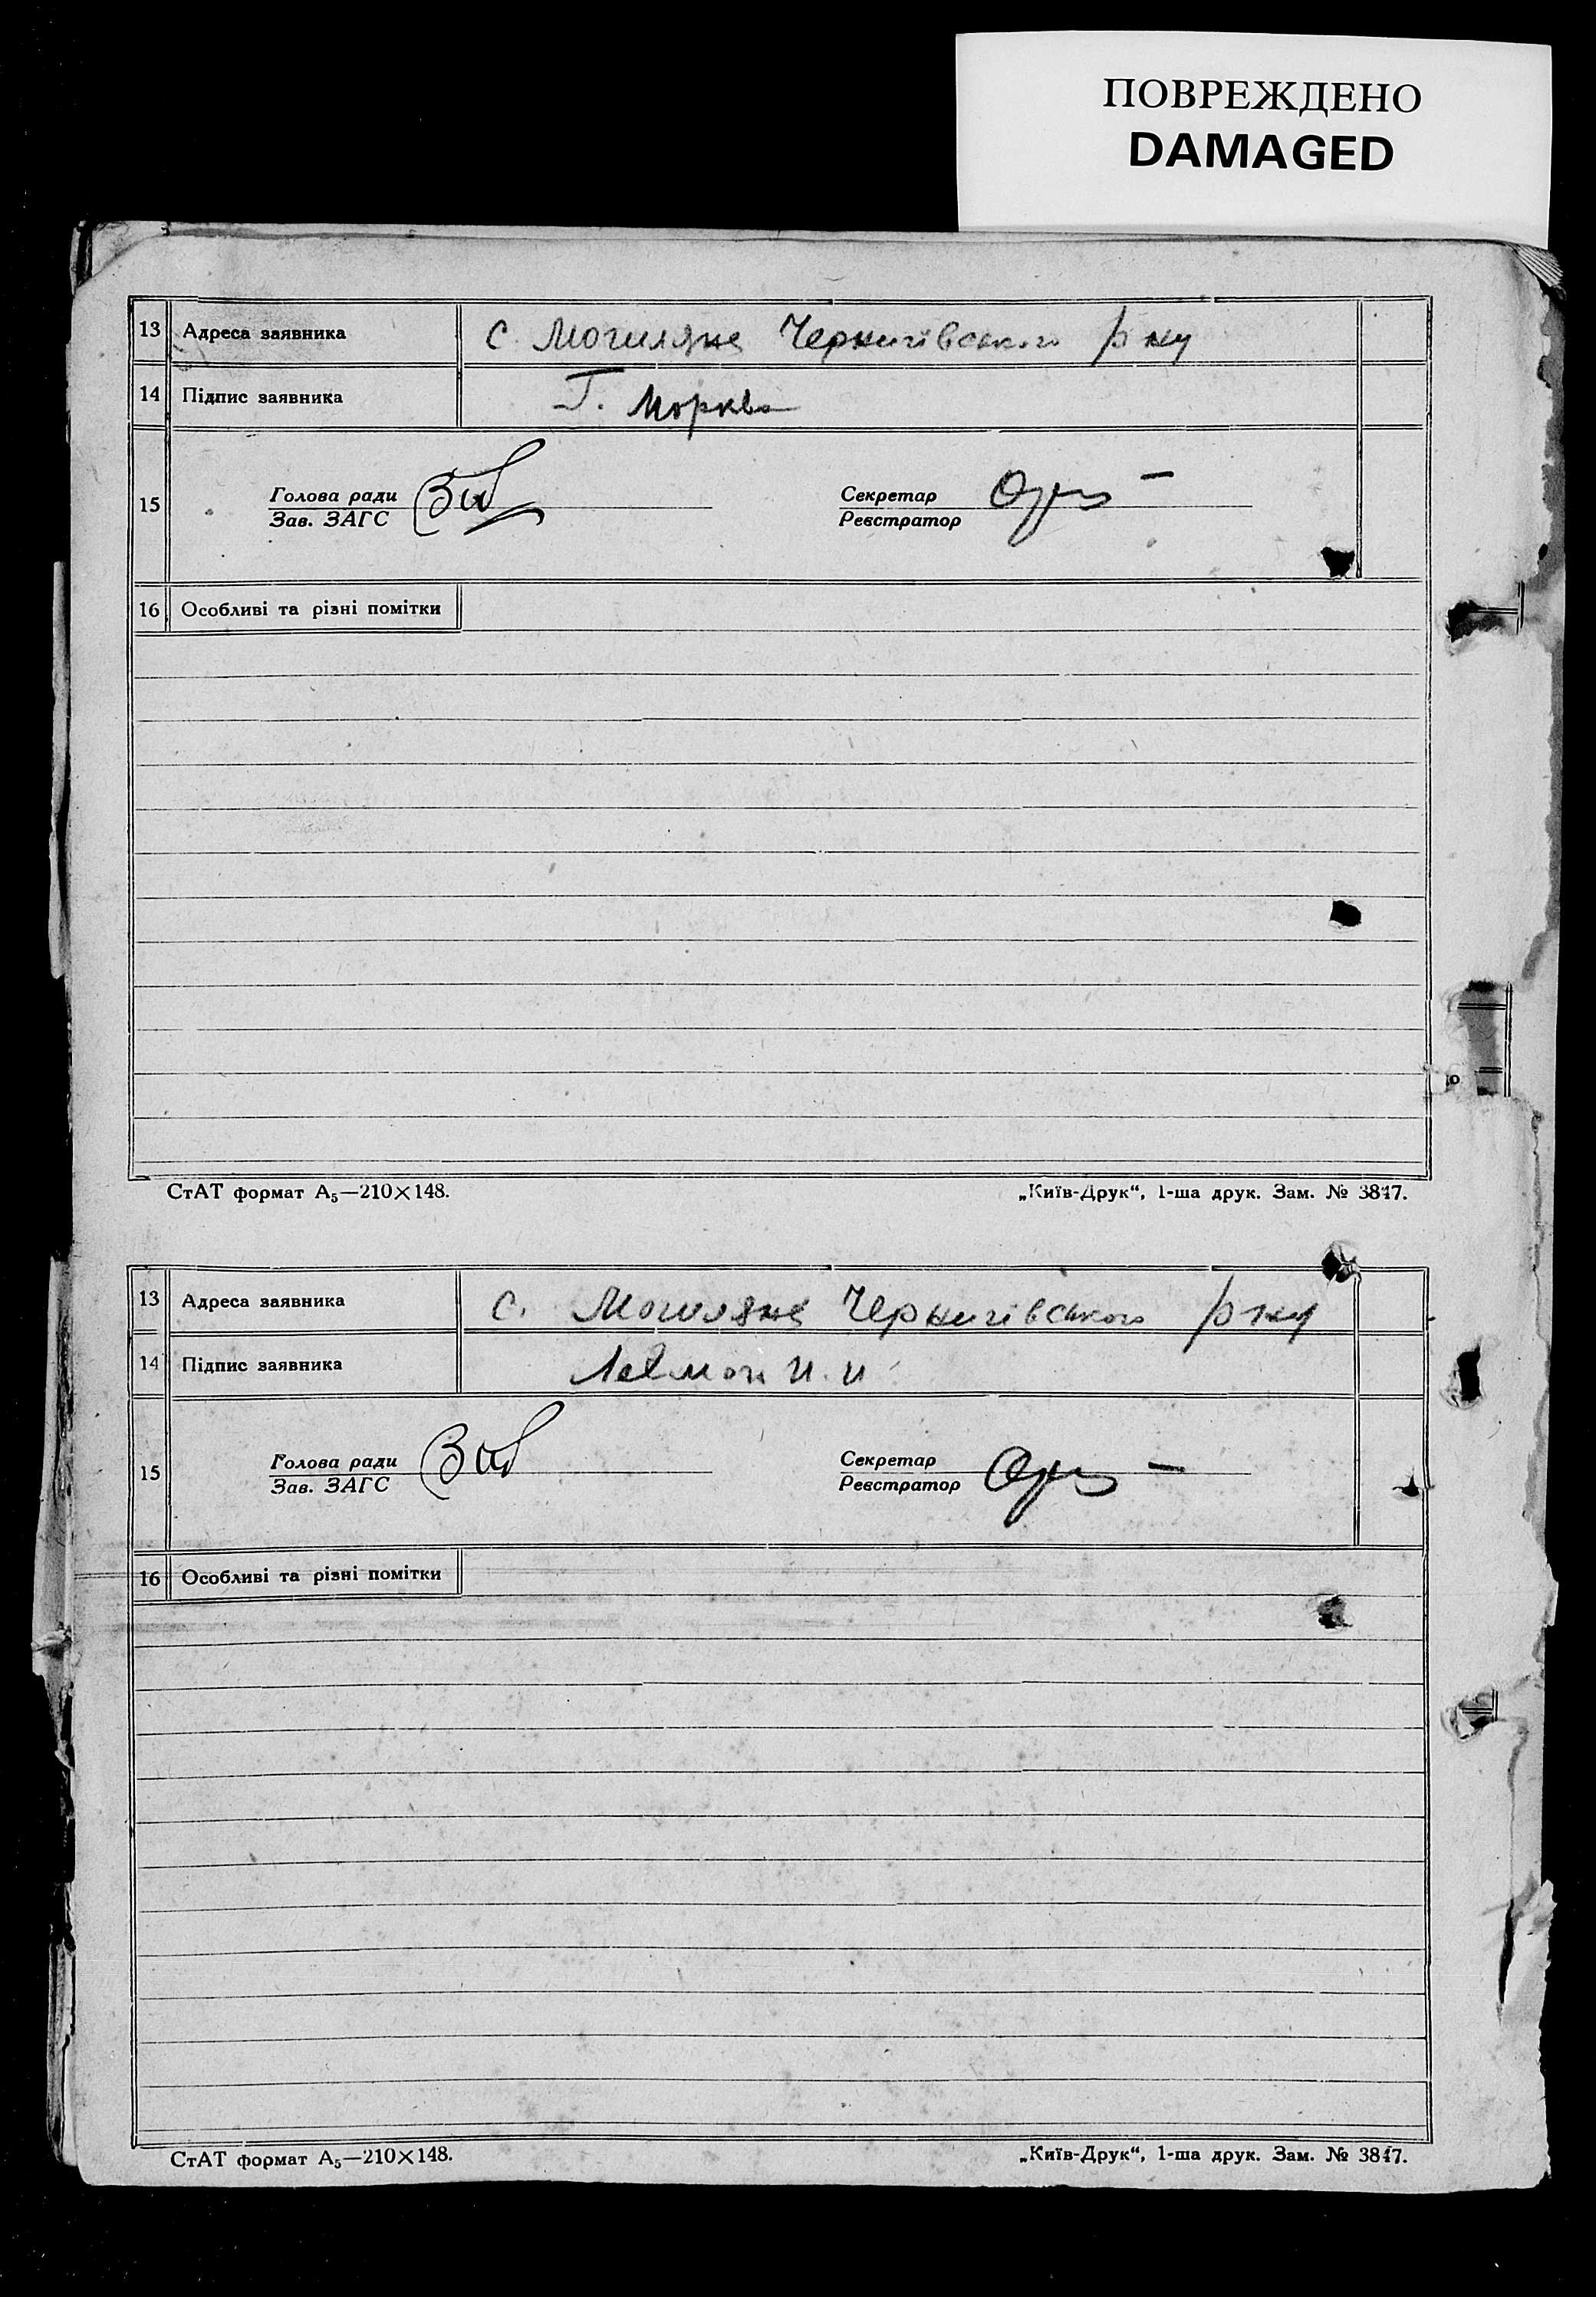 ПОВРЕЖДЕНО
DAMAGED
13 Адреса заявника с. Могиляне Чернигівського р-ну
14 Підпис заявника Г. Морква
15 Голова ради Секретар
Зав. ЗАГС Реєстратор
16 Особливі та різні помітки
СтАТ формат А₅—210×148. „Київ-Друк“, 1-ша друк. Зам. № 3847.
13 Адреса заявника с. Могиляне Чернигівського р-ну
14 Підпис заявника И. И.
15 Голова ради Секретар
Зав. ЗАГС Реєстратор
16 Особливі та різні помітки
СтАТ формат А₅—210×148. „Київ-Друк“, 1-ша друк. Зам. № 3847.